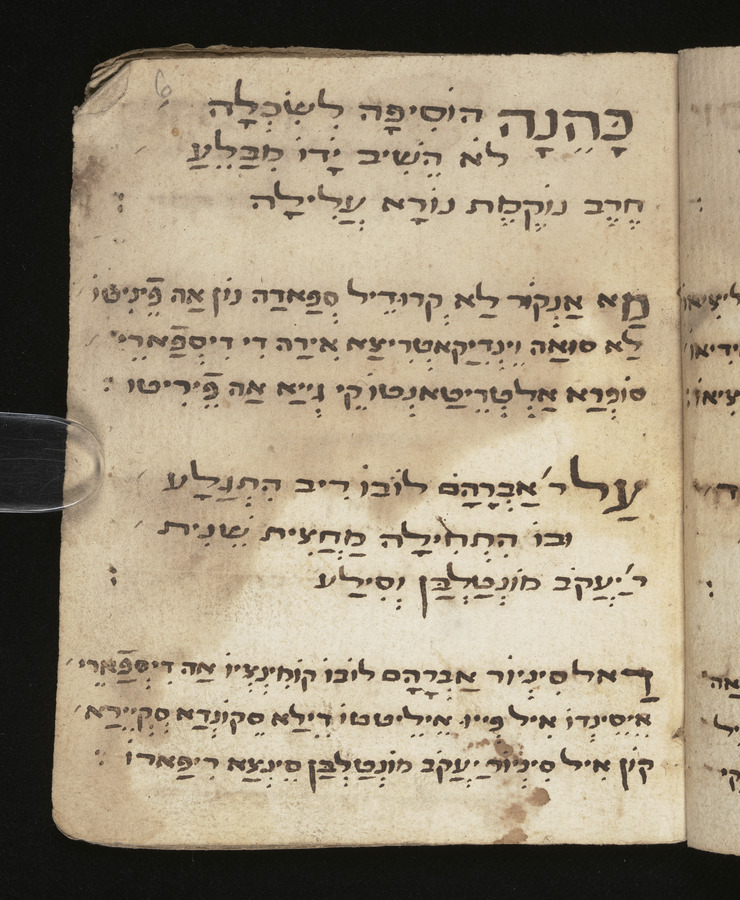 כָּהֵנָה הוֹסִיפָה לְשִׁכְּלָה
לֹא הֵשִׁיב יָדוֹ מִבַּלֵעַ
חֶרֶב נוֹקֶמֶת נוֹרָא עֲלִילָה :
מַא אַנְקוֹר לַא קְרוּדֵיל סְפַּאדַה נוֹן אַה פֵֿינִיטוֹ
לַא סוּאַה וֵינְדִיקַאטְרִיצַא אִירַה דִי דִיסְפַֿארֵי
סוֹפְּרַא אַלְטְרֵיטַאנְטוֹ קֵי גַֿייַא אַה פֵֿירִיטוֹ :
עַל ר' אַבְרָהָם לוֹבוֹ רִיב הִתְגַלָע
וּבוֹ הִתְחִילָה מַחֲצִית שֵׁנִית
ר' יַעֲקֹב מוֹנְטַלְבַּן וְסִילַע :
דַאל סִינְיוֹר אַבְרָהָם לוֹבוֹ קוֹמִינְצִיוֹ אַה דִיסְפַֿארֵי
אֵיסֵינְדוֹ אִיל פִּייוּ אֵילֵיטטוֹ דֵילַא סֵקוֹנְדַא סְקְיֵירַא
קוֹן אִיל סִינְיוֹר יַעֲקֹב מוֹנְטַלְבַּן סֵינְצַא רִיפַּארוֹ :
6